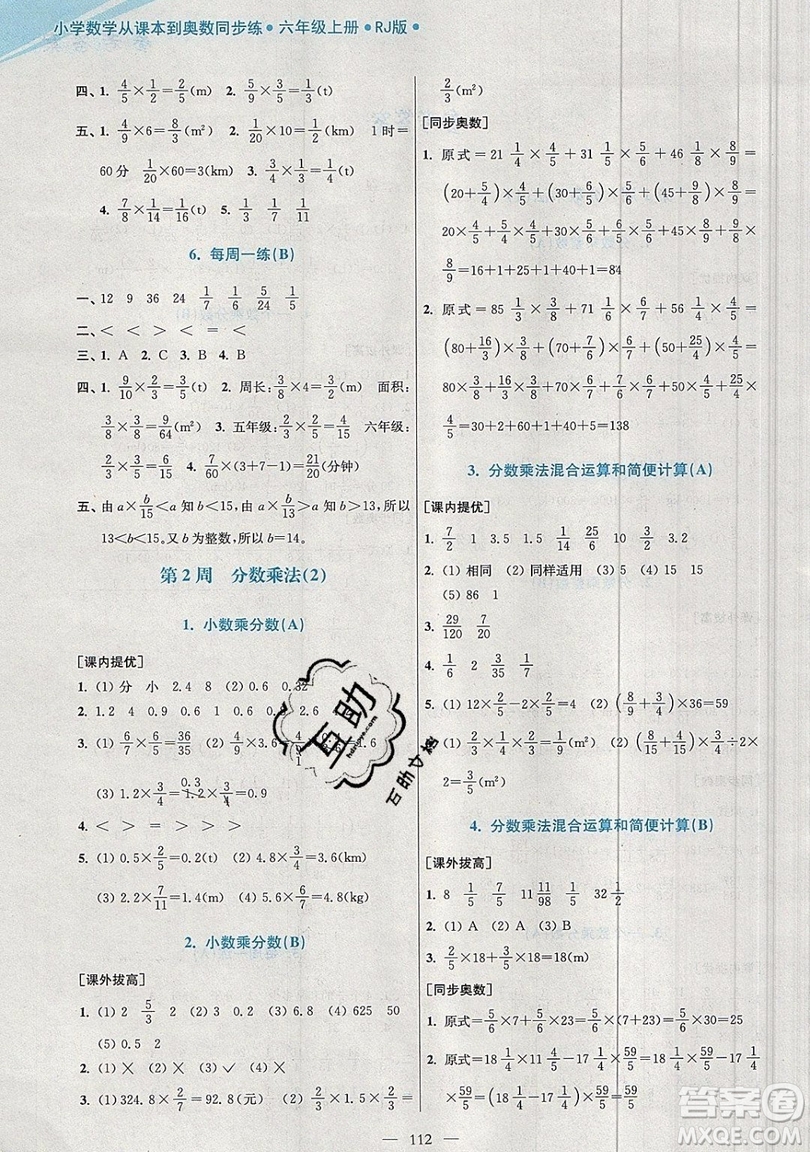 小学数学从课本到奥数同步练●六年级上册●RJ版●
四、1. 4/5×1/2=2/5(m) 2. 4/9×3/4=1/3(t)
五、1. 4/9×6=8/3(m²) 2. 1/20×10=1/2(km) 1时=
60分 1/20×60=3(km) 3. 3/4×1/3=1/4(t)
4. 7/8×1/14=1/16(t) 5. 1/3 1/7 1/11
6. 每周一练(B)
一、12 9 36 24 1/7 6/5 24/5 1/6
二、< < > < = <
三、1. A 2. C 3. B 4. A
四、1. 9/10×2/3=3/5(t) 2. 周长:3/8×4=3/2(m) 面积:
3/8×3/8=9/64(m²) 3. 五年级:2/3×2/5=4/15 六年级:
2/3×1/4=1/6 4. 7/30×(3+7-1)=21/10(分钟)
五、由a×b/15<a可知b<15,由a×b/13>a可知b>13,所以
13<b<15。又b为整数,所以b=14。
第2周 分数乘法(2)
1. 小数乘分数(A)
[课内提优]
1. (1)分 小 2.4 8 (2)0.6 0.32
2. 1.2 4 0.9 0.6 1 0.6
3. (1)6/7×6/5=36/35 (2)4/9×3.6
1.6
(3)1.2×3/4=1.2×3/4=0.9
0.3
1
4. < > > = > >
5. (1)0.5×2/5=0.2(m) (2)4.8×3/4=3.6(km)
(3)2.1×2/3=1.4(m) (4)5.6×6/7=4.8(kg)
2. 小数乘分数(B)
[课外拔高]
1. (1)2 5/3 2 2 (2)0.9 (3)0.6 (4)625 50
(5)0.5 2
2. (1)× (2)× (3)✓ (4)×
3. (1)324.8×2/7=92.8(元) (2)1.5×2/3×2/3=
2/3(m²)
[同步奥数]
1. 原式=21 1/4×4/5+31 1/5×5/6+46 1/8×8/9=
(20+5/4)×4/5+(30+6/5)×5/6+(45+9/8)×8/9=
20×4/5+5/4×4/5+30×5/6+6/5×5/6+45×8/9+9/8×
8/9=16+1+25+1+40+1=84
2. 原式=85 1/3×3/8+71 1/6×6/7+56 1/4×4/5=
(80+16/3)×3/8+(70+7/6)×6/7+(50+25/4)×4/5=
80×3/8+16/3×3/8+70×6/7+7/6×6/7+50×4/5+25/4×
4/5=30+2+60+1+40+5=138
3. 分数乘法混合运算和简便计算(A)
[课内提优]
1. 7/2 1 3.5 1.5 1/14 25/6 10 3/2 3.2
2. (1)相同 (2)同样适用 (3)5 (4)15 15
(5)86 1
3. 29/120 20/7
4. 1/6 2 3/35 11/4
5. (1)12×2/5-2×2/5=4 (2)(8/9+3/4)×36=59
6. (1)2/3×1/4×3=1/2(m²) (2)(8/15+4/15)×3/4÷2×
2=3/5(m²)
4. 分数乘法混合运算和简便计算(B)
[课外拔高]
1. 8 1/15 7/5 11/98 1/5 32 1/2
2. (1)C (2)A (3)B
3. 2/5×18+3/5×18=18(m)
[同步奥数]
1. 原式=5/6×7+5/6×23=5/6×30=25
2. 原式=18 1/4×1/4+18 1/4×59/5-18×59/5=18 1/4
×59/5=
— 112 —
互助
hdzywx.com
互助文库
答案圈
MXQE.COM